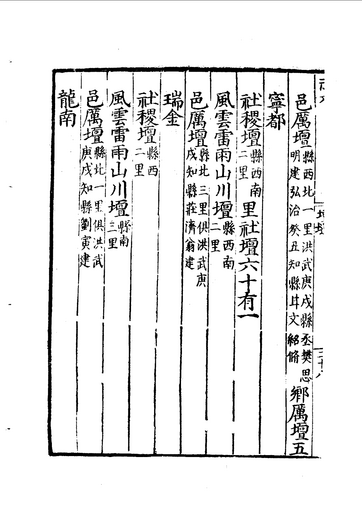 邑厲壇縣西北一里洪武庚戌縣丞樊思明建弘治癸丑知縣 文紹脩鄉厲壇五
寧都
社稷壇縣西南二里里社壇六十有一
風雲雷雨山川壇縣西南二里
邑厲壇縣北三里俱洪武庚戌知縣莊濟翁建
瑞金
社稷壇縣西二里
風雲雷雨山川壇縣南二里
邑厲壇縣北一里俱洪武庚戌知縣劉寅建
龍南